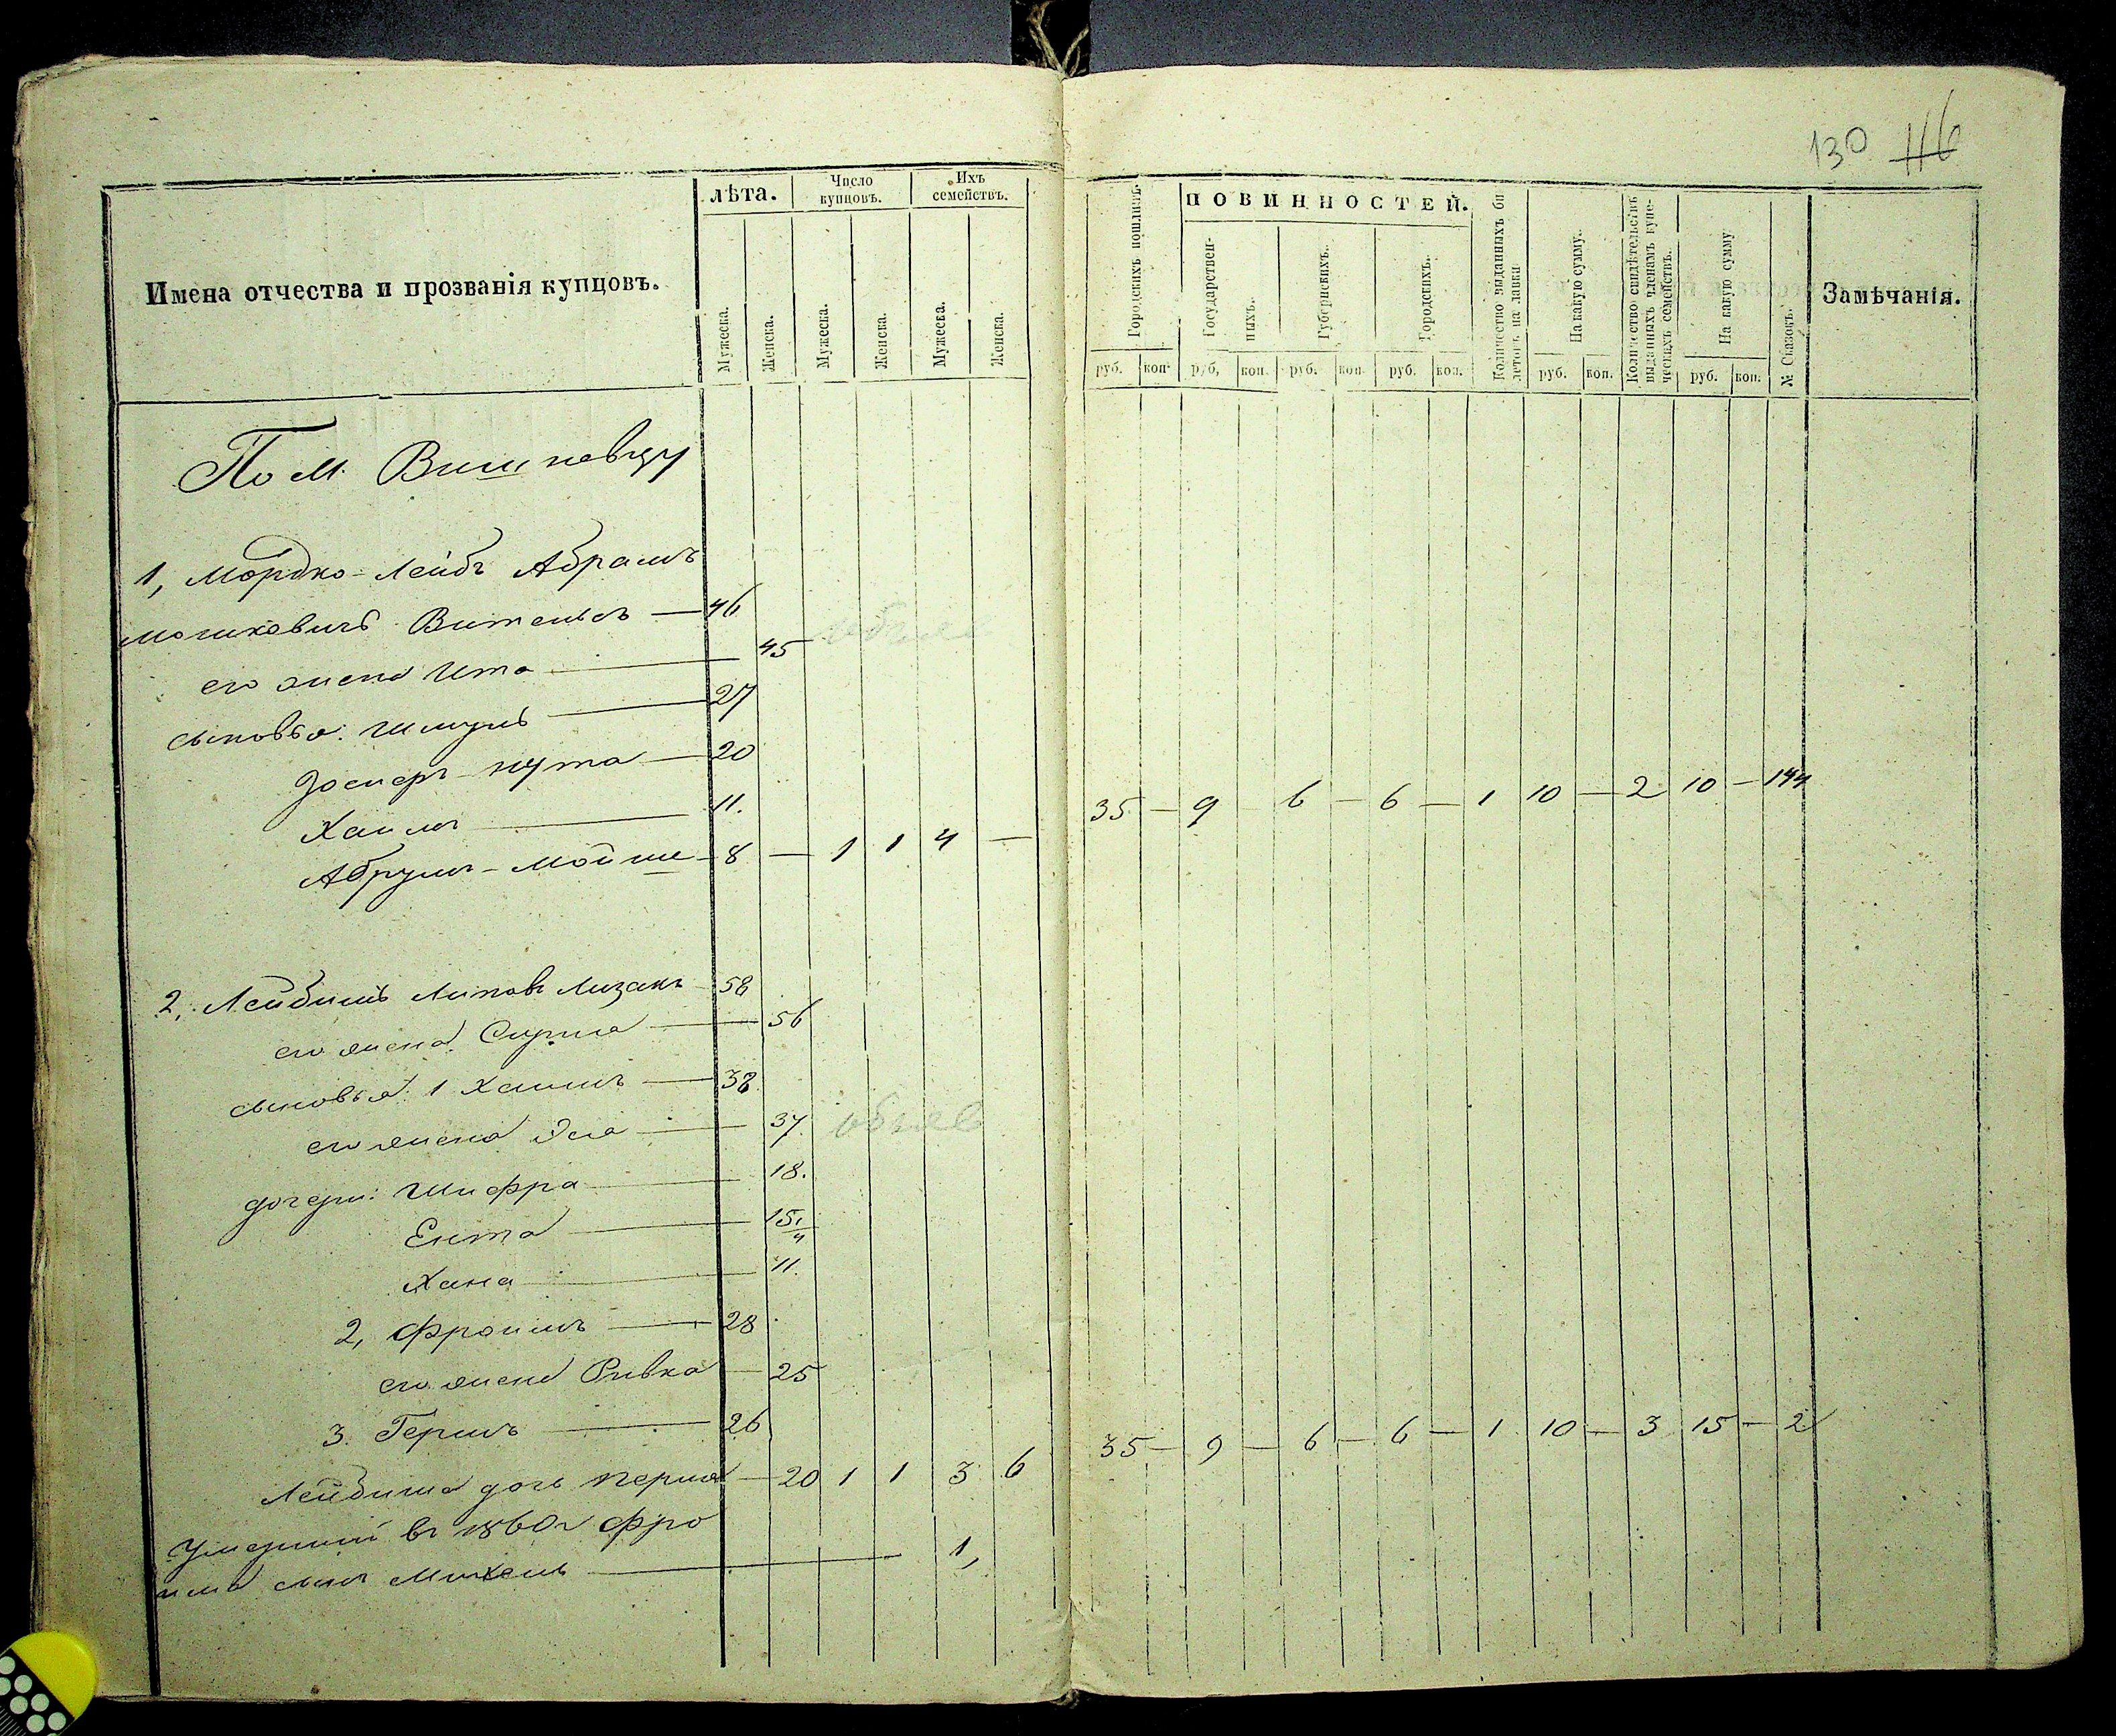 130 116
Имена отчества и прозванія купцовъ.
лѣта.
Мужеска. Женска.
Число купцовъ.
Мужеска. Женска.
Ихъ семействъ.
Мужеска. Женска.
Городскихъ пошлинъ.
руб. коп.
ПОВИННОСТЕЙ.
Государственныхъ.
руб. коп.
Губернскихъ.
руб. коп.
Городскихъ.
руб. коп.
Количество выданныхъ билетовъ на лавки
На какую сумму.
руб. коп.
Количество свидѣтельствъ выданныхъ членамъ купеческихъ семействъ.
На какую сумму
руб. коп.
№ Сказокъ.
Замѣчанія.
По м. Вишневцу
1, Мордко-Лейбъ Абрамъ
Мошковичъ Вительсъ — 46
его жена Ита — 45
сыновья: Шмуль — 27
Иосиеръ-Нута — 20
Хаимъ — 11.
Абрумъ-Мойше — 8 — 1 1 4 —
35 — 9 — 6 — 6 — 1 10 — 2 10 — 144
2, Лейбишъ Липовъ Лизакъ 58
его жена Сурша — 56
сыновья: 1 Хаимъ — 38
его жена Эса — 37.
дочери: Шифра — 18.
Ента — 15 1/4
Хана — 11.
2, Фроимъ — 28
его жена Ривка — 25
3. Гершъ — 26
Лейбиша дочь Перля — 20 1 1 3 6
35 — 9 — 6 — 6 — 1 10 — 3 15 — 2
Умершій въ 1860 г Фро
има сынъ Михель — 1,